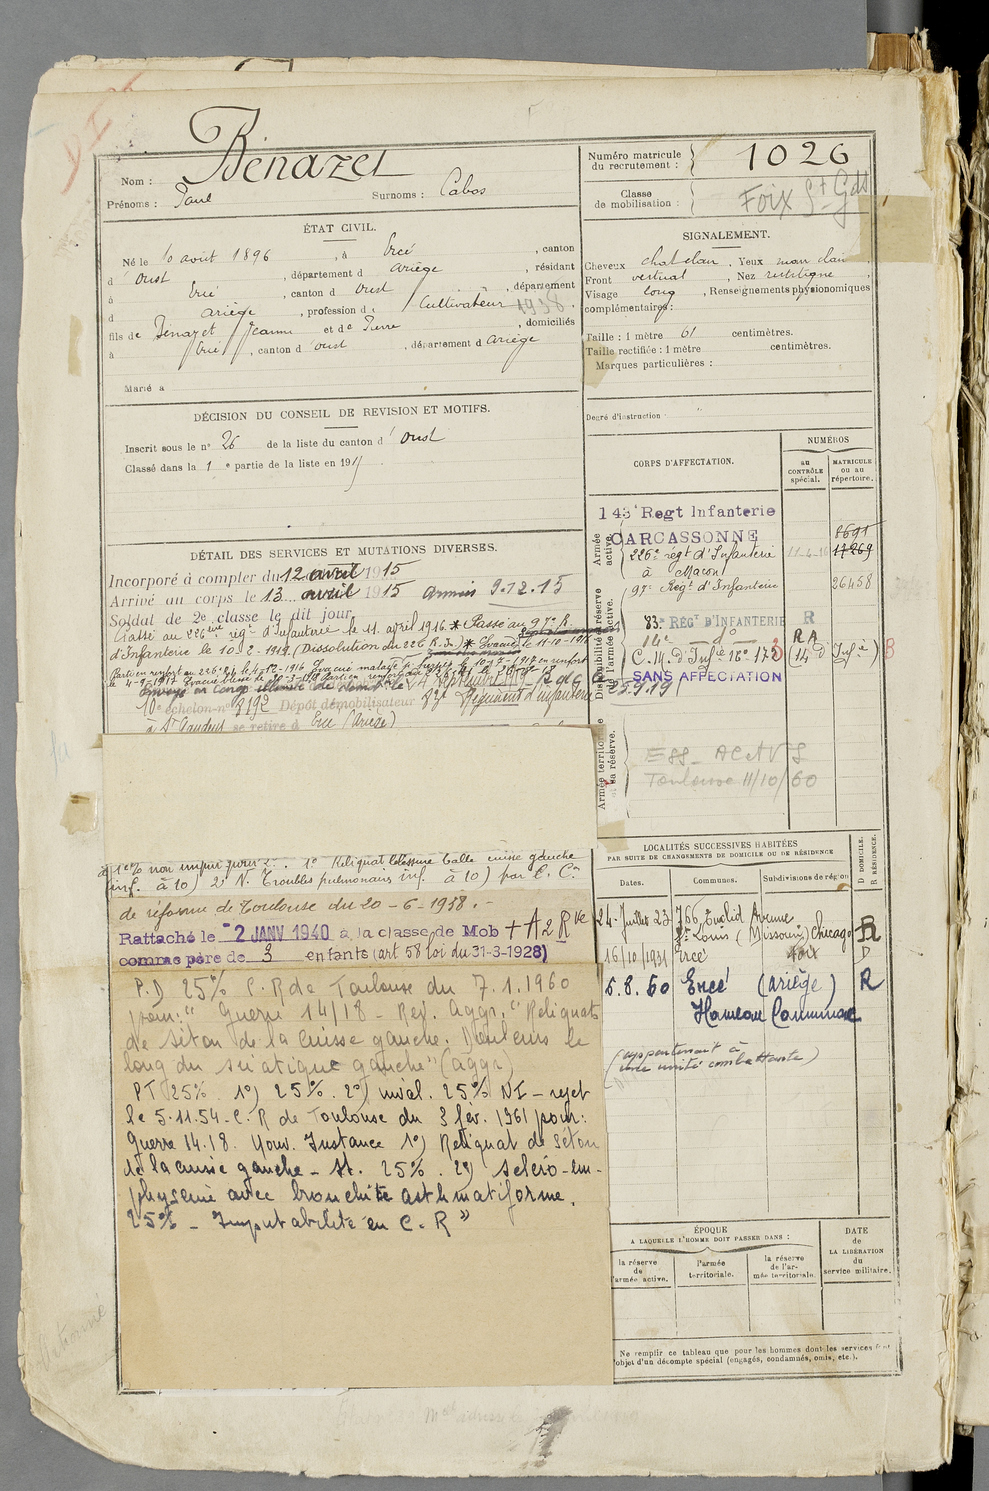 Bénazet
Nom :
Prénoms : Paul Surnoms : Cabos
Numéro matricule
du recrutement : 1026
Classe
de mobilisation : Foix St Gds
ÉTAT CIVIL.
Né le 10 août 1896 , à Ercé , canton
d' Oust , département d Ariège , résidant
à Ercé , canton d Oust , département
d Ariège , profession d Cultivateur 1938.
fils de Benazet Jeanne et de Pierre , domiciliés
à Ercé , canton d' Oust , département d Ariège
Marié à
SIGNALEMENT.
Cheveux chatelain , Yeux marr clair ,
Front vertical , Nez rectiligne ,
Visage long , Renseignements physionomiques
complémentaires :
Taille : 1 mètre 61 centimètres.
Taille rectifiée : 1 mètre centimètres.
Marques particulières :
Degré d'instruction :
DÉCISION DU CONSEIL DE REVISION ET MOTIFS.
Inscrit sous le n° 26 de la liste du canton d' Oust
Classé dans la 1 e partie de la liste en 1915
CORPS D'AFFECTATION.
NUMÉROS
au
CONTRÔLE
spécial.
MATRICULE
ou au
répertoire.
Armée
active.
143e Regt Infanterie
CARCASSONNE
8691
226e régt d'Infanterie 11-4-16 17269
à Macon
97e Régt d'Infanterie 26458
Disponibilité et réserve
de l'armée active.
83e REGt D'INFANTERIE R
14e do RA
C.M. d'Infie 16e-17e (14e d'Infie)
SANS AFFECTATION
25.9.19
Armée territoriale
et sa réserve.
ESS ACAVS
Toulouse 11/10/60
DÉTAIL DES SERVICES ET MUTATIONS DIVERSES.
Incorporé à compter du 12 avril 1915
Arrivé au corps le 13 avril 1915 armée 9.12.15
Soldat de 2e classe le dit jour
Passé au 226ème rég. d'Infanterie le 11 avril 1916 * Passé au 97e R.
d'Infanterie le 10-2-1919. (Dissolution du 226 R.I.) * Evacué le 11-10-1916
10e échelon-n° 3192 Dépôt démobilisateur 83e Régiment d'infanterie
à St Gaudens se retire à Ercé (Ariège)
à 10% non imput. pour 2: . 1° Reliquat blessure balle cuisse gauche
(inf. à 10) 2° N. Troubles pulmonaires inf. à 10) par C. Cn
de réforme de Toulouse du 20-6-1938.-
Rattaché le -2 JANV 1940 à la classe de Mob + A 2 Rve
comme père de 3 enfants (art 58 loi du 31-3-1928)
P.D 25% C.R de Toulouse du 7.1.1960
pour: " Guerre 14/18 - Rev. Aggr. "Reliquats
de séton de la cuisse gauche. Douleurs le
long du sciatique gauche" (aggr)
PT 25% 1°) 25%. 2°) inval. 25% NI - rejet
le 5.11.54 - C.R de Toulouse du 3 fév. 1961 pour:
Guerre 14.18. Nouv. Instance 1°) Reliquat de séton
de la cuisse gauche - St. 25%. 2°) scléro-em-
physème avec bronchite asthmatiforme.
25% - Imputabilité en C.R"
LOCALITÉS SUCCESSIVES HABITÉES
PAR SUITE DE CHANGEMENTS DE DOMICILE OU DE RÉSIDENCE
Dates. Communes. Subdivisions de région
D DOMICILE.
R RÉSIDENCE.
24-Juillet 23 766 Euclid Avenue
St Louis (Missouri) Chicago R
16/10/1931 Ercé Foix D
5.8.60 Ercé (Ariège) R
Hameau Cominac
(appartenant à
une unité combattante)
ÉPOQUE
A LAQUELLE L'HOMME DOIT PASSER DANS :
la réserve
de
l'armée active.
l'armée
territoriale.
la réserve
de l'ar-
mée territoriale.
DATE
de
LA LIBÉRATION
du
service militaire.
Ne remplir ce tableau que pour les hommes dont les services font
l'objet d'un décompte spécial (engagés, condamnés, omis, etc.).